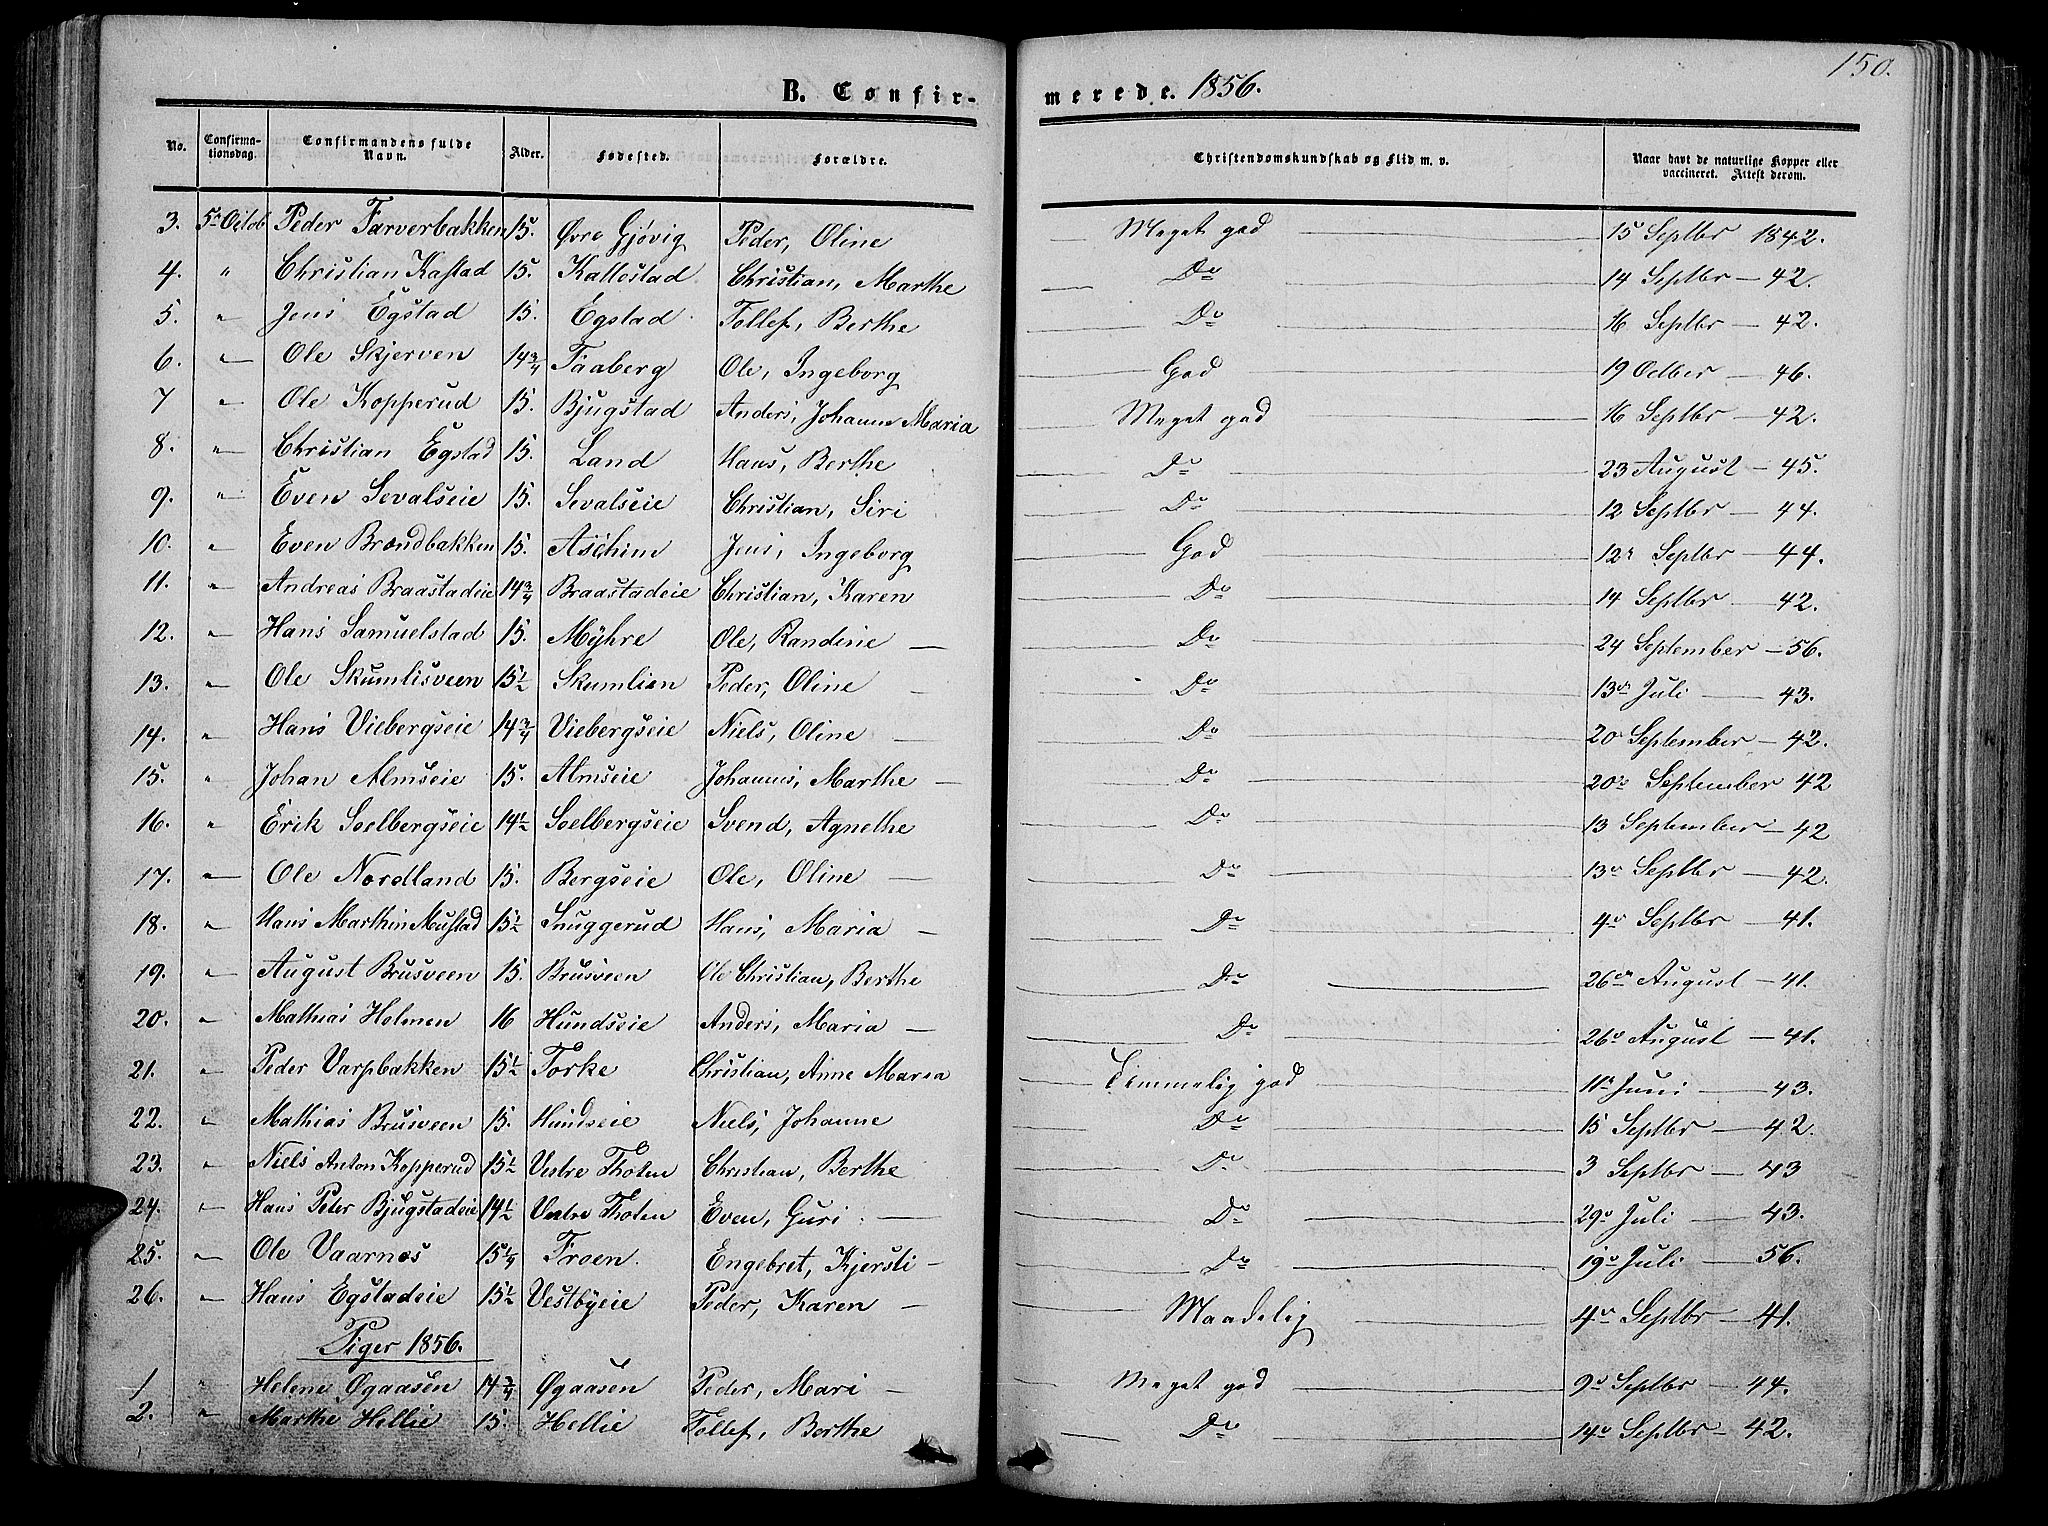 150.
B. Confirmerede. 1856.
No. Confirmationsdag. Confirmandens fulde Navn. Alder. Fødested. Forældre. Christendomskundskab og Flid m. v. Naar havt de naturlige Kopper eller vaccineret. Attest derom.
3. 5te Octob Peder Farverbakken 15. Øvre Gjøvig Peder, Oline Meget god 15 Septbr 1842.
4. " Christian Kastad 15. Kallestad Christian, Marthe Do 14 Septbr — 42.
5. " Jens Egstad 15. Egstad Tollef, Berthe Do 16 Septbr — 42.
6. " Ole Skjerven 14 3/4 Faaberg Ole, Ingeborg God 19 Octber — 46.
7 " Ole Kopperud 15. Bjugstad Anders, Johanne Maria Meget god 16 Septbr — 42.
8. " Christian Egstad 15. Land Hans, Berthe Do 23 August — 45.
9. " Even Sevalseie 15. Sevalseie Christian, Siri Do 12 Septbr — 44.
10. " Even Brændbakken 15. Aschim Jens, Ingeborg God 12 Septbr — 44.
11. " Andreas Braastadeie 14 3/4 Braastadeie Christian, Karen Do 14 Septbr — 42.
12. " Hans Samuelstad 15. Myhre Ole, Randine — Do 24 September — 56.
13. " Ole Skumlisveen 15 1/2 Skumlien Peder, Oline — Do 13de Juli — 43.
14. " Hans Viebergseie 14 3/4 Viebergseie Niels, Oline — Do 20 September — 42.
15. " Johan Almseie 15. Almseie Johannes, Marthe — Do 20de September 42
16. " Erik Soelbergseie 14 1/2 Soelbergseie Svend, Agnethe Do 13 September — 42
17. " Ole Nordland 15. Bergseie Ole, Oline — Do 13de Septbr — 42.
18. " Hans Marthin Mustad 15 1/2 Snuggerud Hans, Maria — Do 4de Septbr — 41.
19. " August Brusveen 15. Brusveen Ole Christian, Berthe Do 26de August — 41.
20. " Mathias Holmen 16 Hundseie Anders, Maria — Do 26de August — 41.
21. " Peder Varpbakken 15 1/2 Torke Christian, Anne Maria Temmelig god 11te Juni — 43.
22. " Mathias Brusveen 15. Hundseie Niels, Johanne Do 15 Septbr — 42.
23. " Niels Anton Kopperud 15 1/2 Vestre Thoten Christian, Berthe Do 3 Septbr — 43
24. " Hans Peter Bjugstadeie 14 1/2 Vestre Thoten Even, Guri. — Do 29de Juli — 43.
25. " Ole Vaarnæs 15 1/4 Froen. Engebret, Kjersti — Do 19de Juli — 56.
26. " Hans Egstadeie 15 1/2 Vestbyeie Peder, Karen — Maadelig 4de Septbr — 41.
Piger 1856.
1 " Helene Øgaasen 14 3/4 Øgaasen Peder, Mari — Meget god 9de Septbr — 44.
2. " Marthe Hellie 15. Hellie Tollef, Berthe Do 14de Septbr — 42.